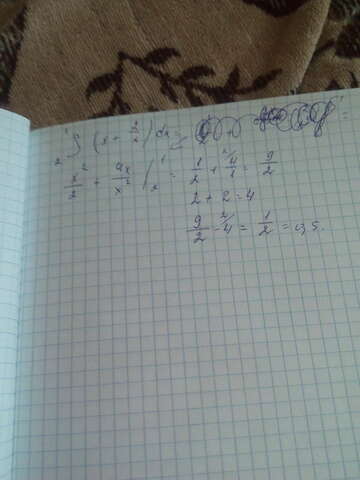 ∫ (x + 2/x) dx =
x²/2 + 4x/x² |₂¹ = 1/2 + 4/1 = 9/2
2 + 2 = 4
9/2 - 4 = 1/2 = 0,5.